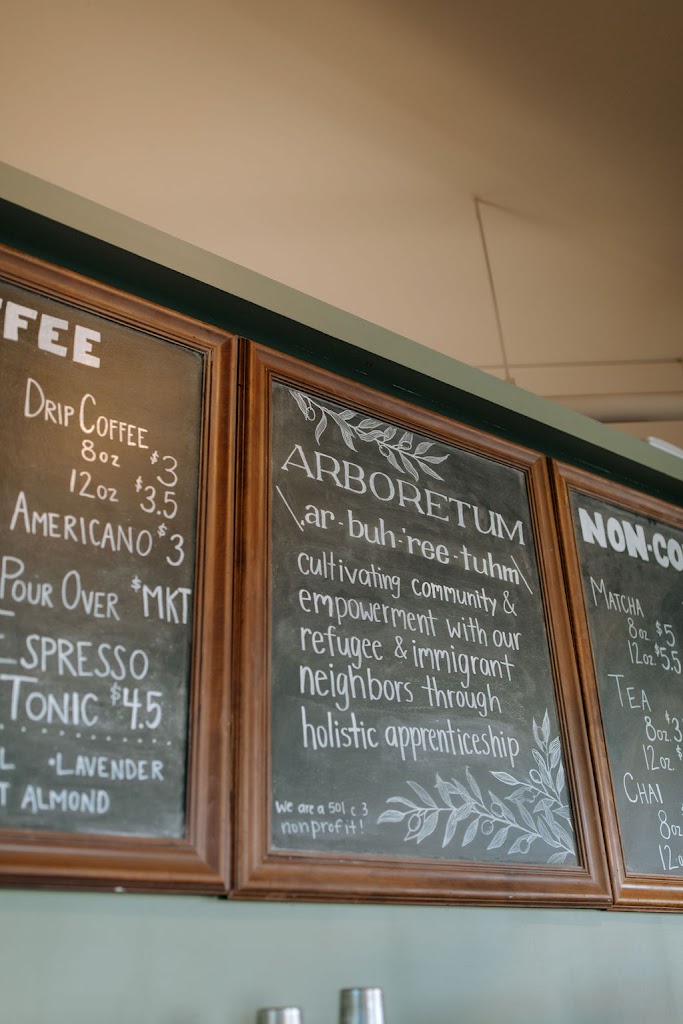 FEE
DRIP COFFEE
8oz $3
12oz $3.5
AMERICANO $3
POUR OVER $MKT
ESPRESSO
TONIC $4.5
•LAVENDER
ALMOND
ARBORETUM
\ar-buh-ree-tuhm\
cultivating community &
empowerment with our
refugee & immigrant
neighbors through
holistic apprenticeship
We are a 501 c 3
nonprofit!
NON-CO
MATCHA
8oz $5
12oz $5.5
TEA
8oz $3
12oz. $
CHAI
8oz
12o